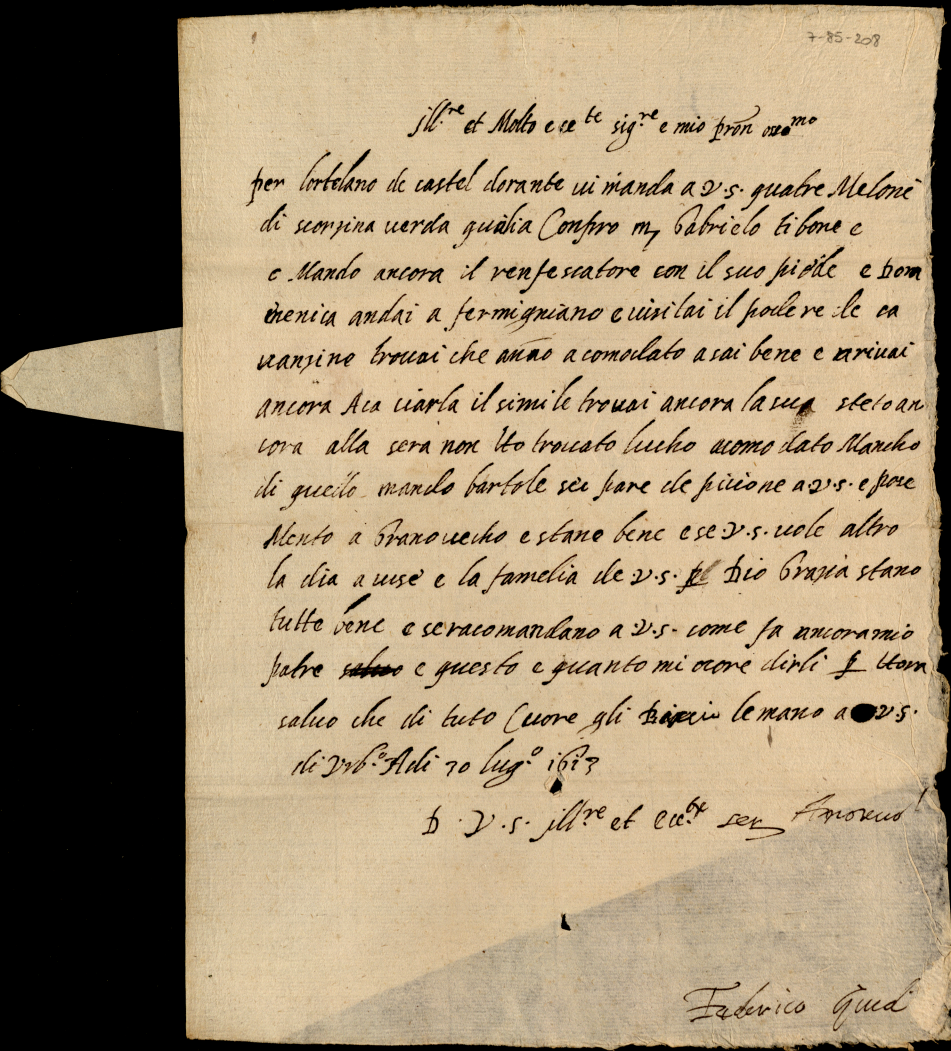 7-85-208
Ill.re et Molto ece.te sig.re e mio pron oss.mo
per lortolano de castel dorante vi manda a V.S. quatre Melone
di scorzina verda Conpro m, Gabrielo tibone e
e Mando ancora il renfescatore con il suo piede e Dom
menica andai a fermigniano e visitai il podere de ca
vanzino trovai che anno acomodato asai bene e arivai
ancora Aca ciarla il simile trovai ancora la sua steto an
cora alla sera non Ho trovato lucho acomodato Mancho
di quello mando bartole sei pare de picione a V.S. e pose
Mento a Grano vecho e stano bene e se V.S. vole altro
la dia avise e la famelia de V.S. p Dio Grazia stano
tutte bene e seracomandano a V.S. come fa ancora mio
patre e questo e quanto mi ocore dirli p Hora
salvo che di tuto Cuore gli le mano a V.S.
di Urb.o Adi 30 lug.o 1613
D. V.S. Ill.re et ecc.te ser
Federico Guidi